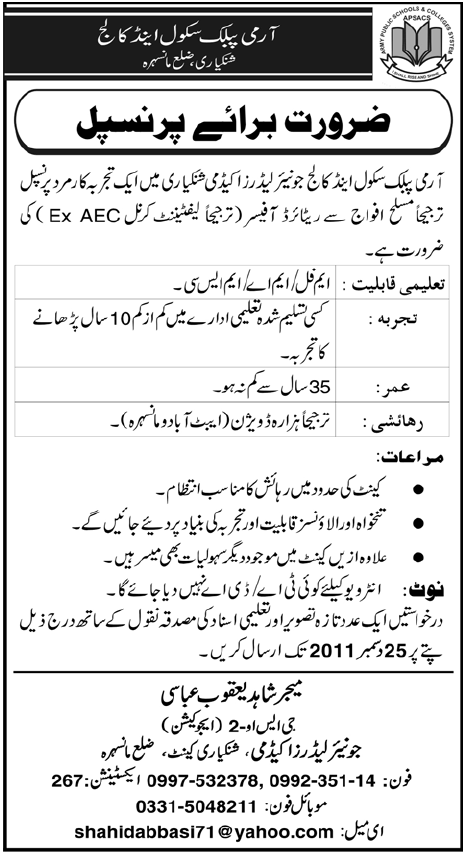 آرمی پبلک سکول اینڈ کالج
شنکیاری، ضلع مانسہرہ
ARMY PUBLIC SCHOOLS & COLLEGES SYSTEM
APSACS
ضرورت برائے پرنسپل
آرمی پبلک سکول اینڈ کالج جونیئر لیڈرز اکیڈمی شنکیاری میں ایک تجربہ کار مرد پرنسپل
ترجیحاً مسلح افواج سے ریٹائرڈ آفیسر (ترجیحاً لیفٹیننٹ کرنل Ex AEC) کی
ضرورت ہے۔
تعلیمی قابلیت : ایم فل/ ایم اے/ ایم ایس سی۔
تجربہ : کسی تسلیم شدہ تعلیمی ادارے میں کم از کم 10 سال پڑھانے
کا تجربہ۔
عمر: 35 سال سے کم نہ ہو۔
رہائشی: ترجیحاً ہزارہ ڈویژن (ایبٹ آباد و مانسہرہ)۔
مراعات:
● کینٹ کی حدود میں رہائش کا مناسب انتظام۔
● تنخواہ اور الاؤنسز قابلیت اور تجربہ کی بنیاد پر دیئے جائیں گے۔
● علاوہ ازیں کینٹ میں موجود دیگر سہولیات بھی میسر ہیں۔
نوٹ: انٹرویو کیلئے کوئی ٹی اے/ ڈی اے نہیں دیا جائے گا۔
درخواستیں ایک عدد تازہ تصویر اور تعلیمی اسناد کی مصدقہ نقول کے ساتھ درج ذیل
پتے پر 25 دسمبر 2011 تک ارسال کریں۔
میجر شاہد یعقوب عباسی
جی ایس او-2 (ایجوکیشن)
جونیئر لیڈرز اکیڈمی، شنکیاری کینٹ، ضلع مانسہرہ
فون: 0992-351-14 ,0997-532378 ایکسٹینشن: 267
موبائل فون: 0331-5048211
ای میل: shahidabbasi71@yahoo.com